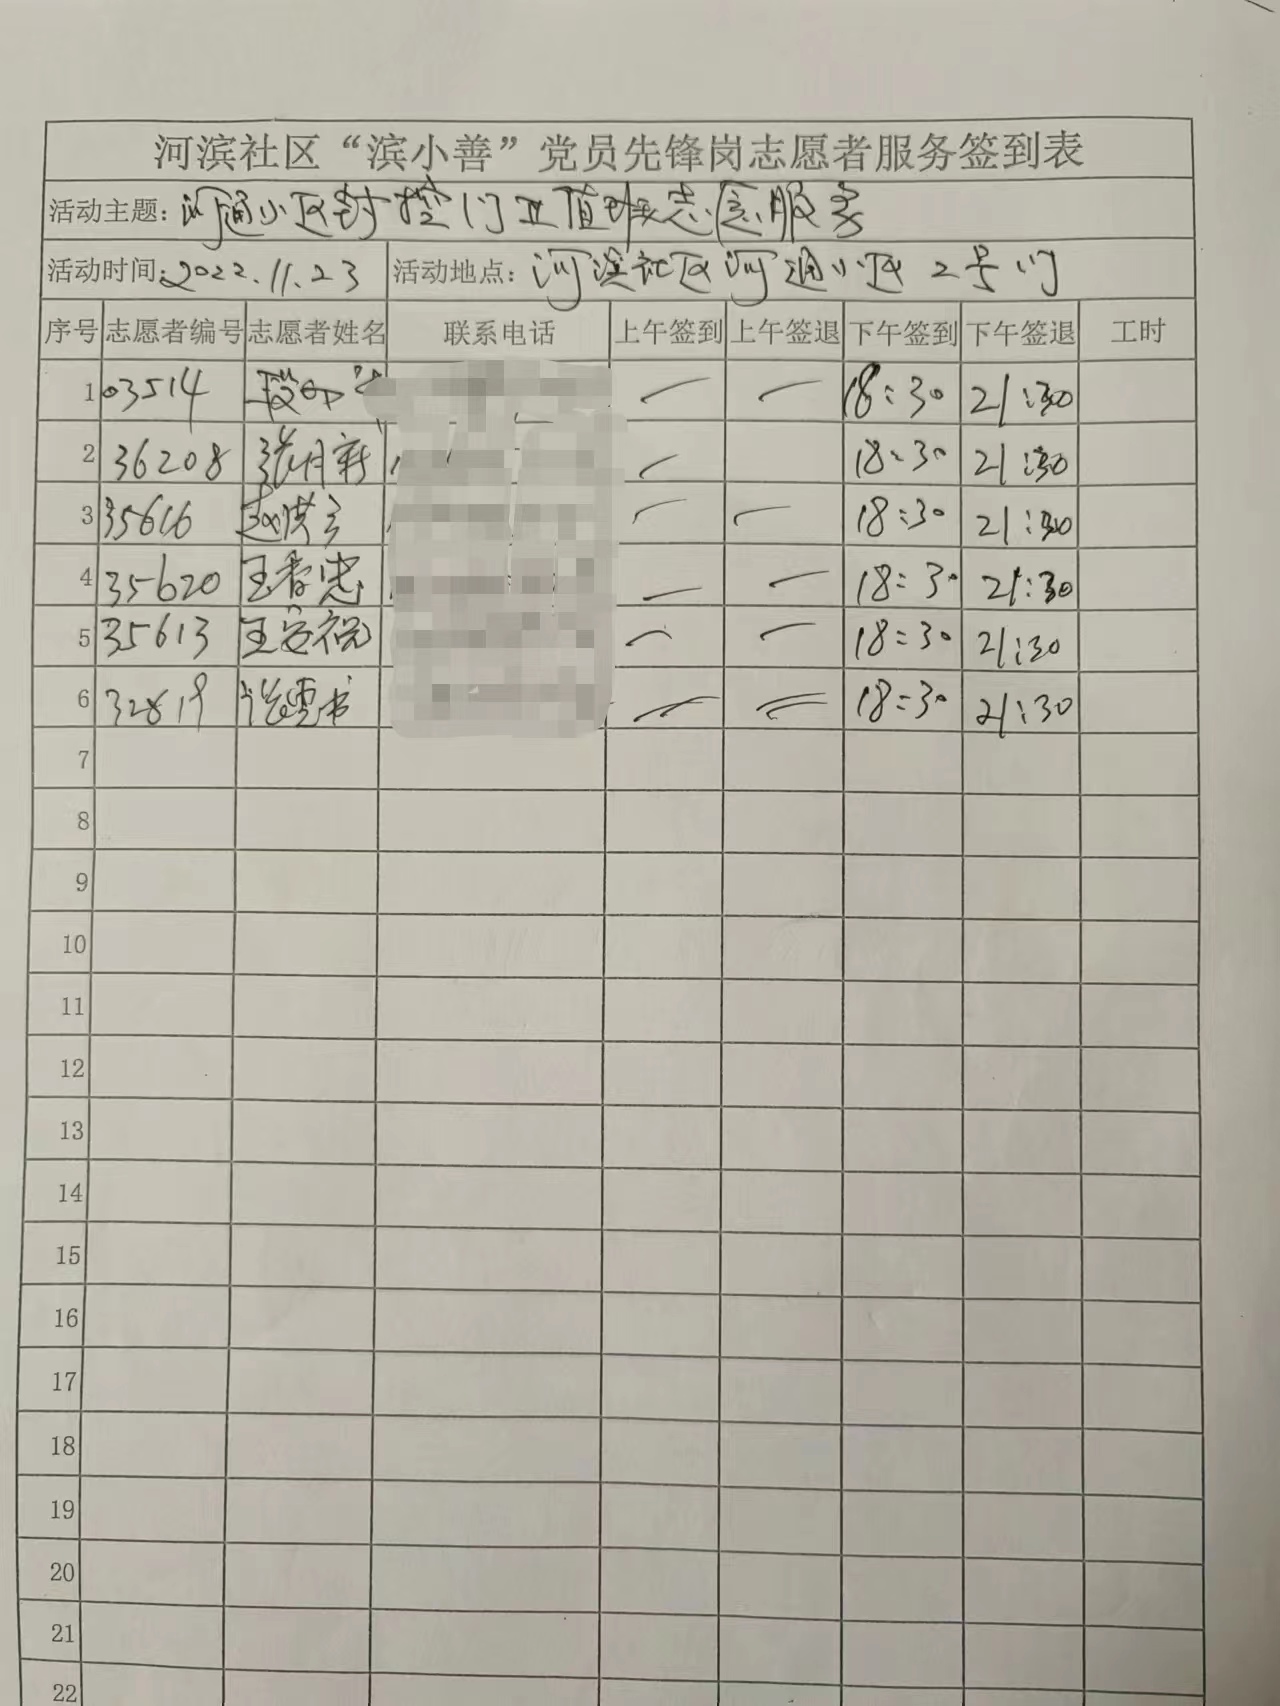 河滨社区“滨小善”党员先锋岗志愿者服务签到表
活动主题：河通小区封控门卫值班志愿服务
活动时间：2022.11.23 活动地点：河滨社区河通小区2号门
序号 志愿者编号 志愿者姓名 联系电话 上午签到 上午签退 下午签到 下午签退 工时
1 03514 — — 18:30 21:30
2 36208 张月新 — 18:30 21:30
3 35616 赵洪 — — 18:30 21:30
4 35620 王香忠 — — 18:30 21:30
5 35613 王安祝 — — 18:30 21:30
6 32819 — — 18:30 21:30
7
8
9
10
11
12
13
14
15
16
17
18
19
20
21
22